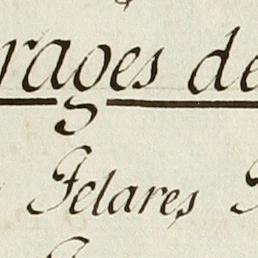 rages de
Felares